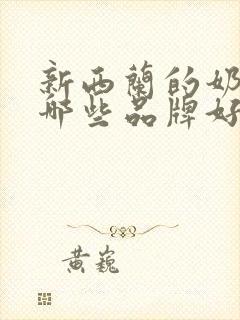 新西兰的奶
哪些品牌好
黄巍